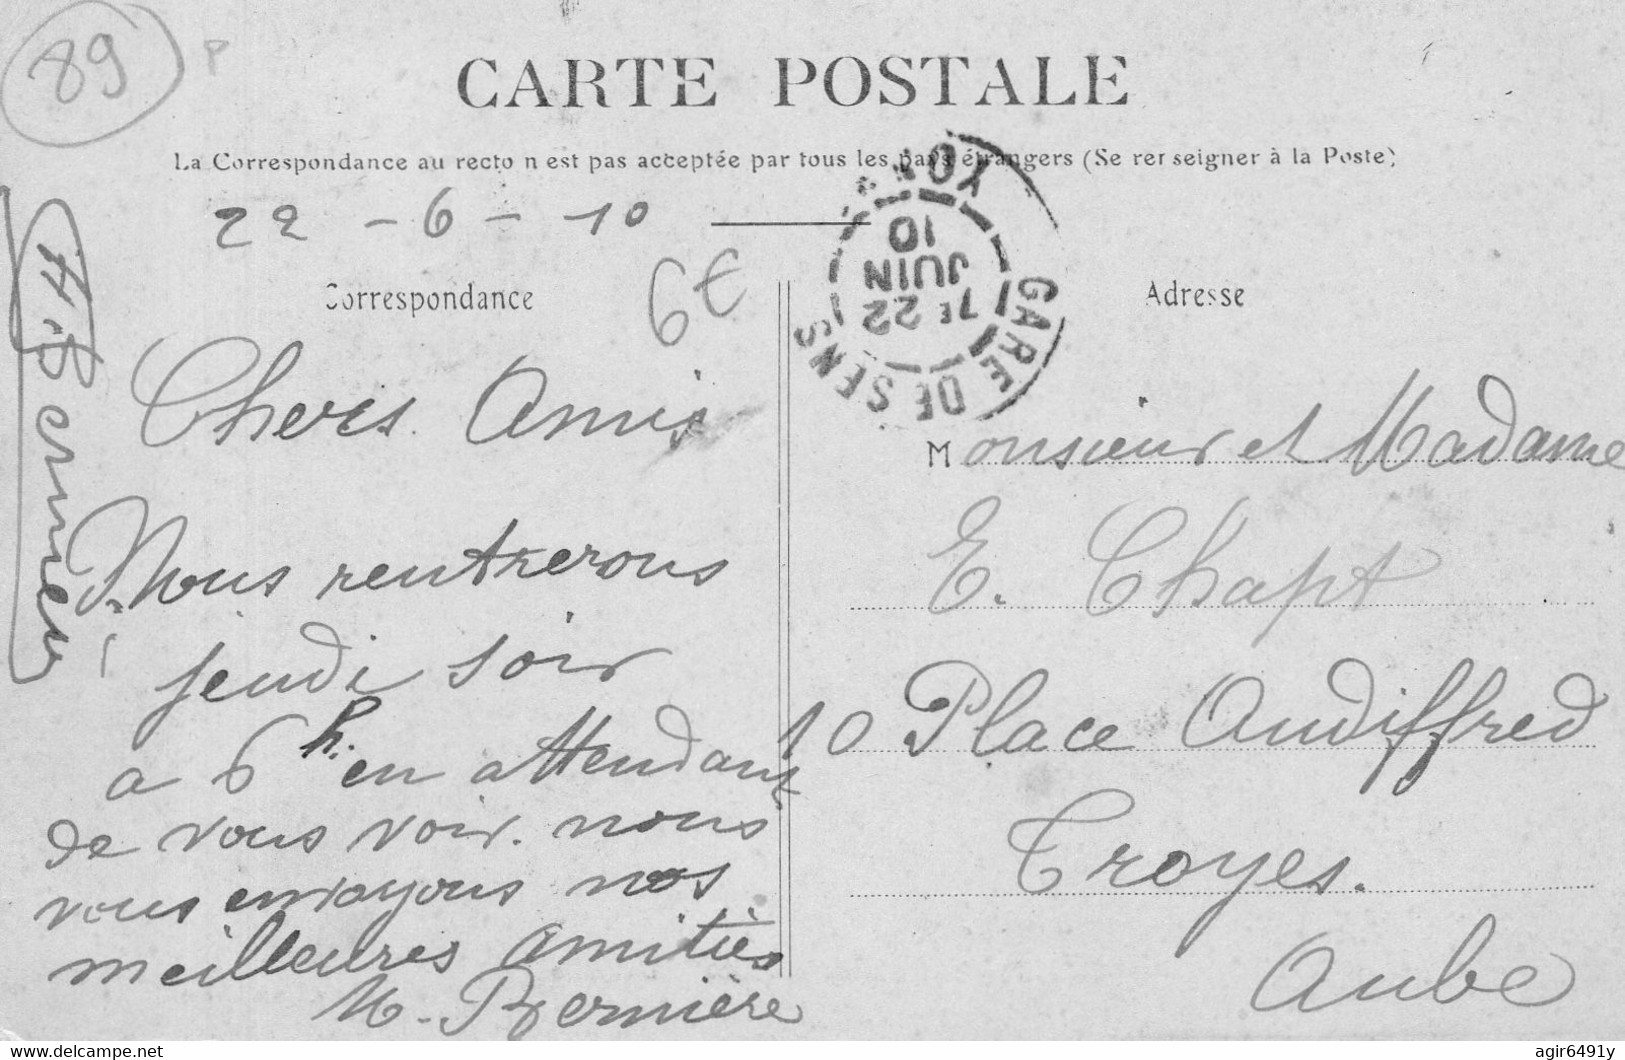 89
P
CARTE POSTALE
La Correspondance au recto n est pas acceptée par tous les pays étrangers (Se rer seigner à la Poste)
22 - 6 - 10
Correspondance
6€
GARE DE SENS YON
7E 22
JUIN
10
Adresse
H. Bernier
Chers Amis
Nous rentrerons
jeudi soir
a 6 h. en attendant
de vous voir. nous
vous envoyons nos
meilleures amitiés
M. Bernière
Monsieur et Madame
E. Chapt
10 Place Audiffred
Troyes.
Aube
delcampe.net
agir6491y